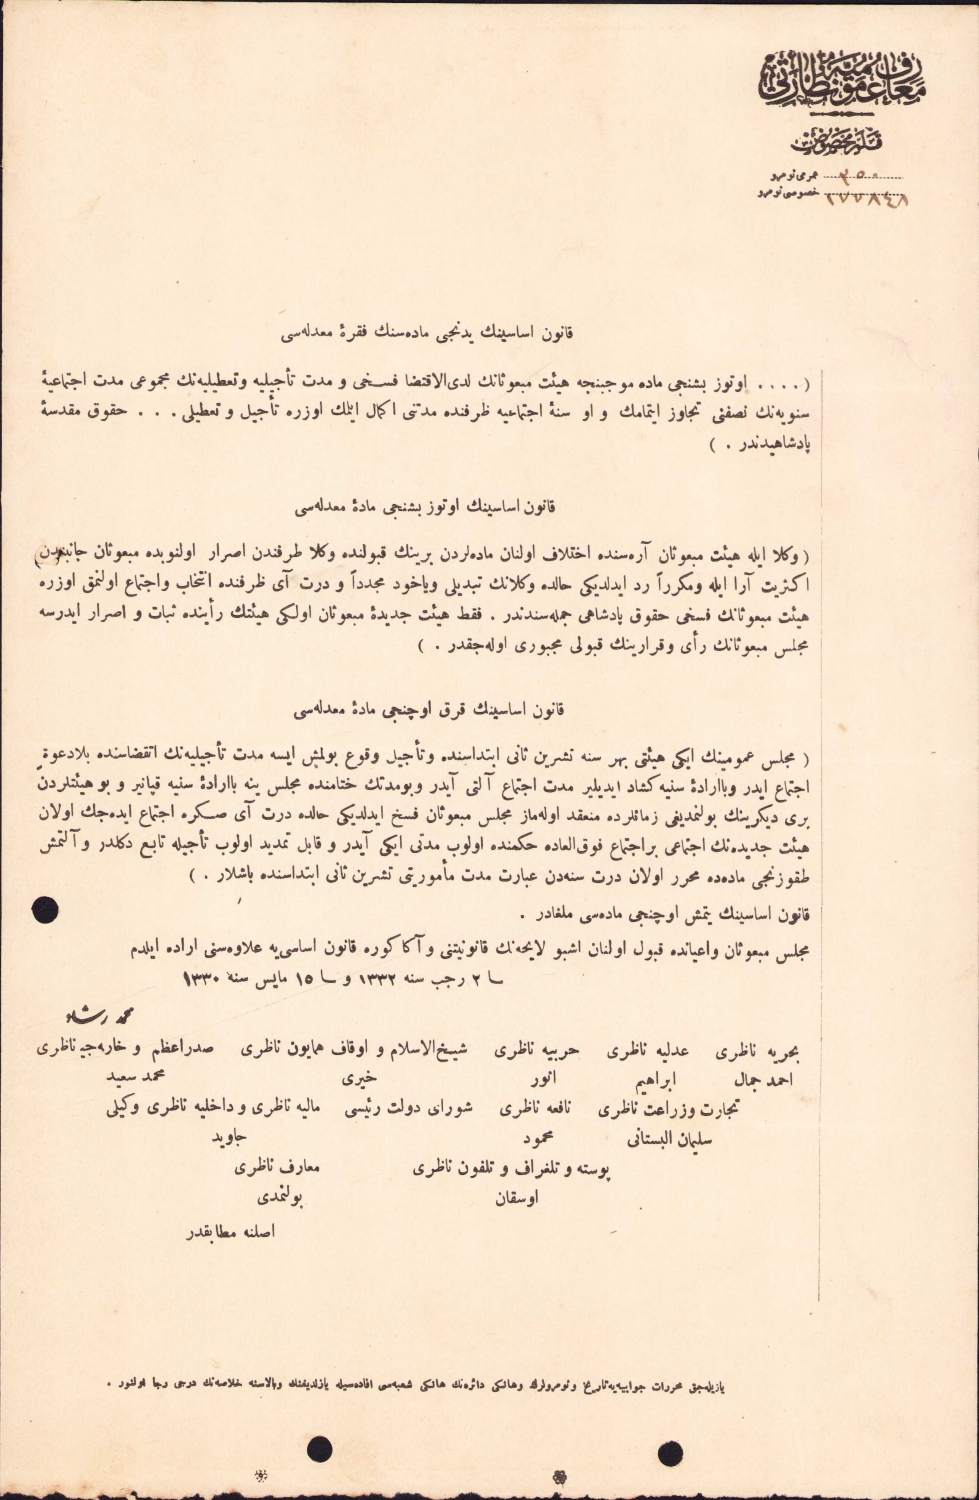 معارف عمومیه نظارتی
قلم مخصوص
عمومی نومرو ٢٥٠
خصوصی نومرو ٢٧٧٨٤٨
قانون اساسینك یدنجی ماده‌سنك فقرۀ معدله‌سی
( . . . . اوتوز بشنجی ماده موجبنجه هیئت مبعوثانك لدی‌الاقتضا فسخی و مدت تأجیلیه وتعطیلیه‌نك مجموعی مدت اجتماعیۀ
سنویه‌نك نصفنی تجاوز ایتمامك و او سنۀ اجتماعیه ظرفنده مدتنی اکمال ایلمك اوزره تأجیل و تعطیلی . . . حقوق مقدسۀ
پادشاهیدندر . )
قانون اساسینك اوتوز بشنجی مادۀ معدله‌سی
( وکلا ایله هیئت مبعوثان آره‌سنده اختلاف اولنان ماده‌لردن برینك قبولنده وکلا طرفندن اصرار اولنوبده مبعوثان جانبندن
اکثریت آرا ایله ومکرراً رد ایدلدیکی حالده وکلانك تبدیلی ویاخود مجدداً و درت آی ظرفنده انتخاب واجتماع اولنمق اوزره
هیئت مبعوثانك فسخی حقوق پادشاهی جمله‌سندندر . فقط هیئت جدیدۀ مبعوثان اولکی هیئتك رأینده ثبات و اصرار ایدرسه
مجلس مبعوثانك رأی وقرارینك قبولی مجبوری اوله‌جقدر . )
قانون اساسینك قرق اوچنجی مادۀ معدله‌سی
( مجلس عمومینك ایکی هیئتی بهر سنه تشرین ثانی ابتداسنده وتأجیل وقوع بولمش ایسه مدت تأجیلیه‌نك انقضاسنده بلادعوة
اجتماع ایدر وباارادۀ سنیه کشاد ایدیلیر مدت اجتماع آلتی آیدر وبومدتك ختامنده مجلس ینه باارادۀ سنیه قپانیر و بو هیئتلردن
بری دیکرینك بولنمدیغی زمانلرده منعقد اوله‌ماز مجلس مبعوثان فسخ ایدلدیکی حالده درت آی صکره اجتماع ایده‌جك اولان
هیئت جدیده‌نك اجتماعی براجتماع فوق‌العاده حکمنده اولوب مدتی ایکی آیدر و قابل تمدید اولوب تأجیله تابع دکلدر و آلتمش
طقوزنجی ماده‌ده محرر اولان درت سنه‌دن عبارت مدت مأموریتی تشرین ثانی ابتداسنده باشلار . )
قانون اساسینك یتمش اوچنجی ماده‌سی ملغادر .
مجلس مبعوثان واعیانده قبول اولنان اشبو لایحه‌نك قانونیتنی و آکا کوره قانون اساسی‌یه علاوه‌سنی اراده ایلدم
٢ رجب سنه ١٣٣٢ و ١٥ مایس سنه ١٣٣٠
محمد رشاد
بحریه ناظری عدلیه ناظری حربیه ناظری شیخ‌الاسلام و اوقاف همایون ناظری صدراعظم و خارجیه ناظری
احمد جمال ابراهیم انور خیری محمد سعید
تجارت وزراعت ناظری نافعه ناظری شورای دولت رئیسی مالیه ناظری و داخلیه ناظری وکیلی
سلیمان البستانی محمود جاوید
پوسته و تلغراف و تلفون ناظری معارف ناظری
اوسقان بولنمدی
اصلنه مطابقدر
یازیله‌جق محررات جوابیه‌یه تاریخ و نومرولرله وهانکی دائره‌نك هانکی شعبه‌سی افاده‌سیله یازلدیغنك وبالاسنه خلاصه‌نك درجی رجا اولنور .